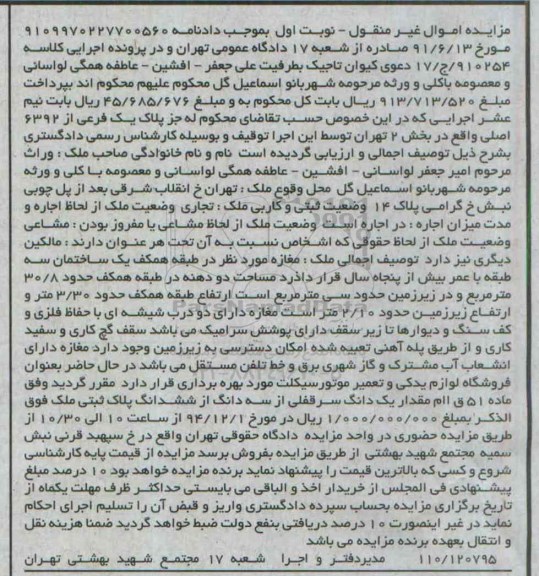 مزایده اموال غیر منقول - نوبت اول بموجب دادنامه ۹۱۰۹۹۷۰۲۲۷۷۰۰۵۶۰
مورخ ۹۱/۶/۱۳ صادره از شعبه ۱۷ دادگاه عمومی تهران و در پرونده اجرایی کلاسه
۹۱۰۲۵۴/ج/۱۷ دعوی کیوان تاجیک بطرفیت علی جعفر - افشین - عاطفه همگی لواسانی
و معصومه باکلی و ورثه مرحومه شهربانو اسماعیل گل محکوم علیهم محکوم اند بپرداخت
مبلغ ۹۱۳/۷۱۳/۵۲۰ ریال بابت کل محکوم به و مبلغ ۴۵/۶۸۵/۶۷۶ ریال بابت نیم
عشر اجرایی که در این خصوص حسب تقاضای محکوم له جز پلاک یک فرعی از ۶۳۹۲
اصلی واقع در بخش ۲ تهران توسط این اجرا توقیف و بوسیله کارشناس رسمی دادگستری
بشرح ذیل توصیف اجمالی و ارزیابی گردیده است نام و نام خانوادگی صاحب ملک : وراث
مرحوم امیر جعفر لواسانی - افشین - عاطفه همگی لواسانی و معصومه با کلی و ورثه
مرحومه شهربانو اسماعیل گل محل وقوع ملک : تهران خ انقلاب شرقی بعد از پل چوبی
نبش خ گرامی پلاک ۱۴ وضعیت ثبتی و کاربی ملک : تجاری وضعیت ملک از لحاظ اجاره و
مدت میزان اجاره : در اجاره است وضعیت ملک از لحاظ مشاعی یا مفروز بودن : مشاعی
وضعیت ملک از لحاظ حقوقی که اشخاص نسبت به آن تحت هر عنوان دارند : مالکین
دیگری نیز دارد توصیف اجمالی ملک : مغازه مورد نظر در طبقه همکف یک ساختمان سه
طبقه با عمر بیش از پنجاه سال قرار دادرد مساحت دو دهنه در طبقه همکف حدود ۳۰/۸
مترمربع و در زیرزمین حدود سی مترمربع است ارتفاع طبقه همکف حدود ۳/۳۰ متر و
ارتفاع زیرزمین حدود ۲/۱۰ متر است مغازه دارای دو درب شیشه ای با حفاظ فلزی و
کف سنگ و دیوارها تا زیر سقف دارای پوشش سرامیک می باشد سقف گچ کاری و سفید
کاری و از طریق پله آهنی تعبیه شده امکان دسترسی به زیرزمین وجود دارد مغازه دارای
انشعاب آب مشترک و گاز شهری برق و خط تلفن مستقل می باشد در حال حاضر بعنوان
فروشگاه لوازم یدکی و تعمیر موتورسیکلت مورد بهره برداری قرار دارد مقرر گردید وفق
ماده ۵۱ ق اام مقدار یک دانگ سرقفلی از سه دانگ از ششدانگ پلاک ثبتی ملک فوق
الذکر بمبلغ ۱/۰۰۰/۰۰۰/۰۰۰ ریال در مورخ ۹۴/۱۲/۱ از ساعت ۱۰ الی ۱۰/۳۰ از
طریق مزایده حضوری در واحد مزایده دادگاه حقوقی تهران واقع در خ سپهبد قرنی نبش
سمیه مجتمع شهید بهشتی از طریق مزایده بفروش برسد مزایده از قیمت پایه کارشناسی
شروع و کسی که بالاترین قیمت را پیشنهاد نماید برنده مزایده خواهد بود ۱۰ درصد مبلغ
پیشنهادی فی المجلس از خریدار اخذ و الباقی می بایستی حداکثر ظرف مهلت یکماه از
تاریخ برگزاری مزایده بحساب سپرده دادگستری واریز و قبض آن را تسلیم اجرای احکام
نماید در غیر اینصورت ۱۰ درصد دریافتی بنفع دولت ضبط خواهد گردید ضمنا هزینه نقل
و انتقال بعهده برنده مزایده می باشد
۱۱۰/۱۲۰۷۹۵ مدیردفتر و اجرا شعبه ۱۷ مجتمع شهید بهشتی تهران